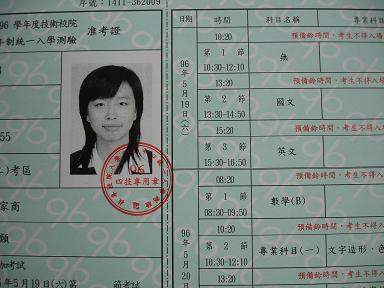 序號：1411-362009
96 學年度技術校院
年制統一入學測驗
准考證
55
)考區
家商
加考試
年5月19日(六)第 節考試
06
四技專用章
日期 時間 科目名稱 專業科目
10:20 預備鈴時間，考生不得入場
96年5月19日(六)
第 1 節 10:30-12:10 無
13:20 預備鈴時間，考生不得入場
第 2 節 13:30-14:50 國文
15:20 預備鈴時間，考生不得入場
第 3 節 15:30-16:50 英文
08:20 預備鈴時間，考生不得入
96年5月20日
第 1 節 08:30-09:50 數學(B)
10:20 預備鈴時間，考生不得入
第 2 節 10:30-12:10 專業科目(一) 文字造形、色
13:20 預備鈴時間，考生不得